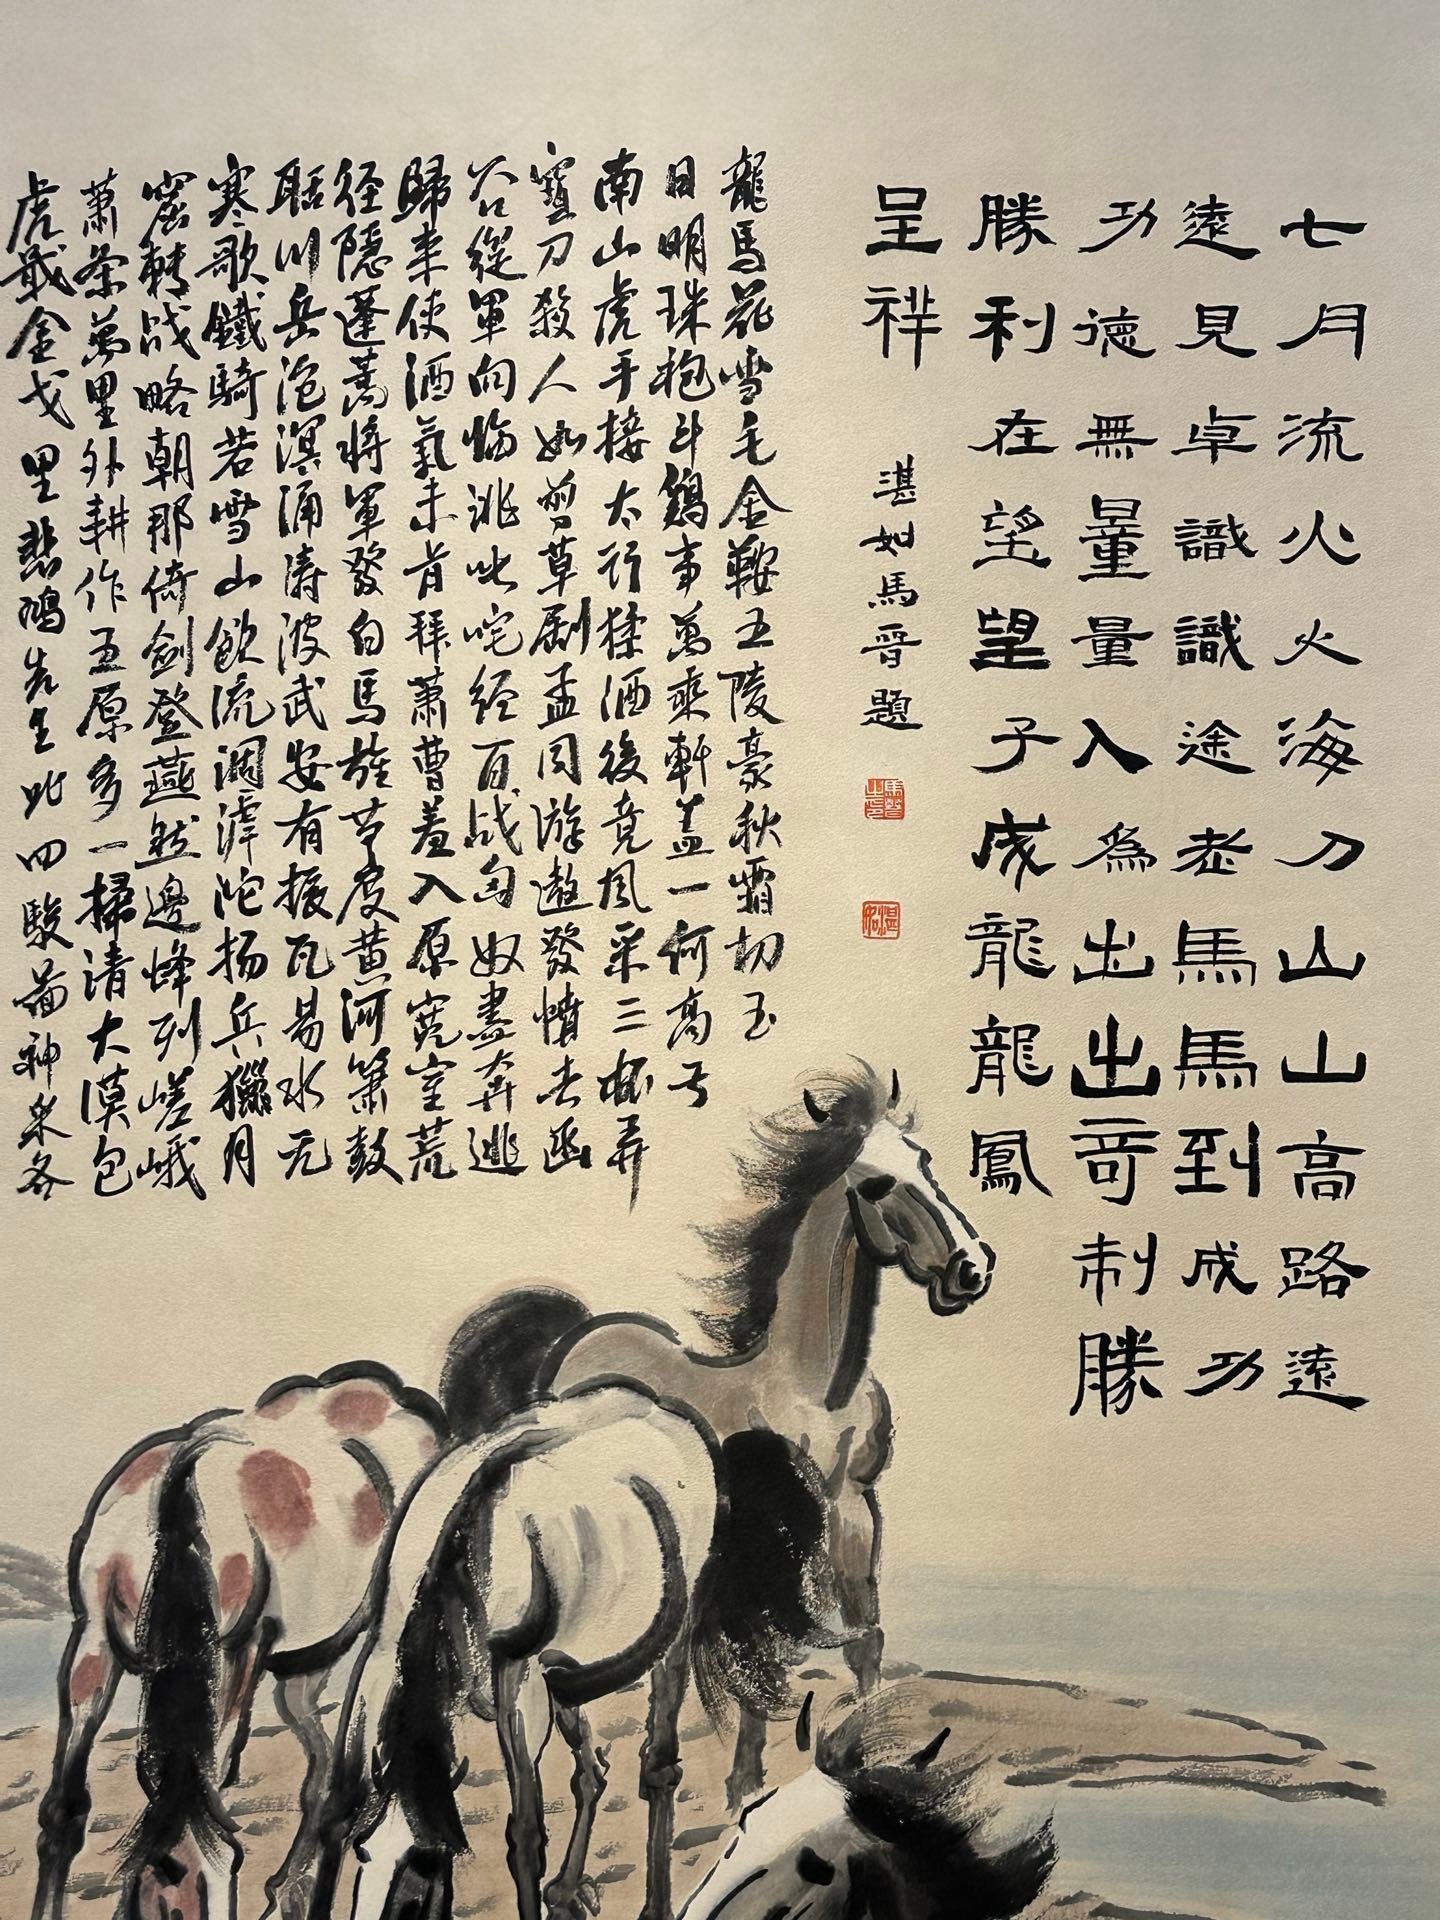 七月流火火海刀山山高路遠
遠見卓識識途老馬馬到成功
功德無量量入為出出奇制勝
勝利在望望子成龍龍鳳
呈祥
湛如馬晋題
馬晉之印
湛如
龍馬花雪毛金鞍五陵豪秋霜切玉
日明珠袍斗鷄事萬乘軒蓋一何高弓
南山虎手接太行猱酒後竞風采三杯弄
寶刀殺人如剪草劇孟同游遨發憤去函
谷從軍向臨洮叱咤經百战匈奴盡奔逃
歸来使酒氣未肯拜蕭曹羞入原宪室荒
径隱蓬蒿將軍發白馬旌节度黄河箫鼓
聒川岳滄溟涌涛波武安有振瓦易水无
寒歌鐵騎若雪山飲流涸滹沱扬兵獵月
窟轉战略朝那倚劍登燕然邊烽列嵯峨
蕭条萬里外耕作五原多一掃清大漠包
虎戢金戈里悲鴻先生此四駿啚神采各